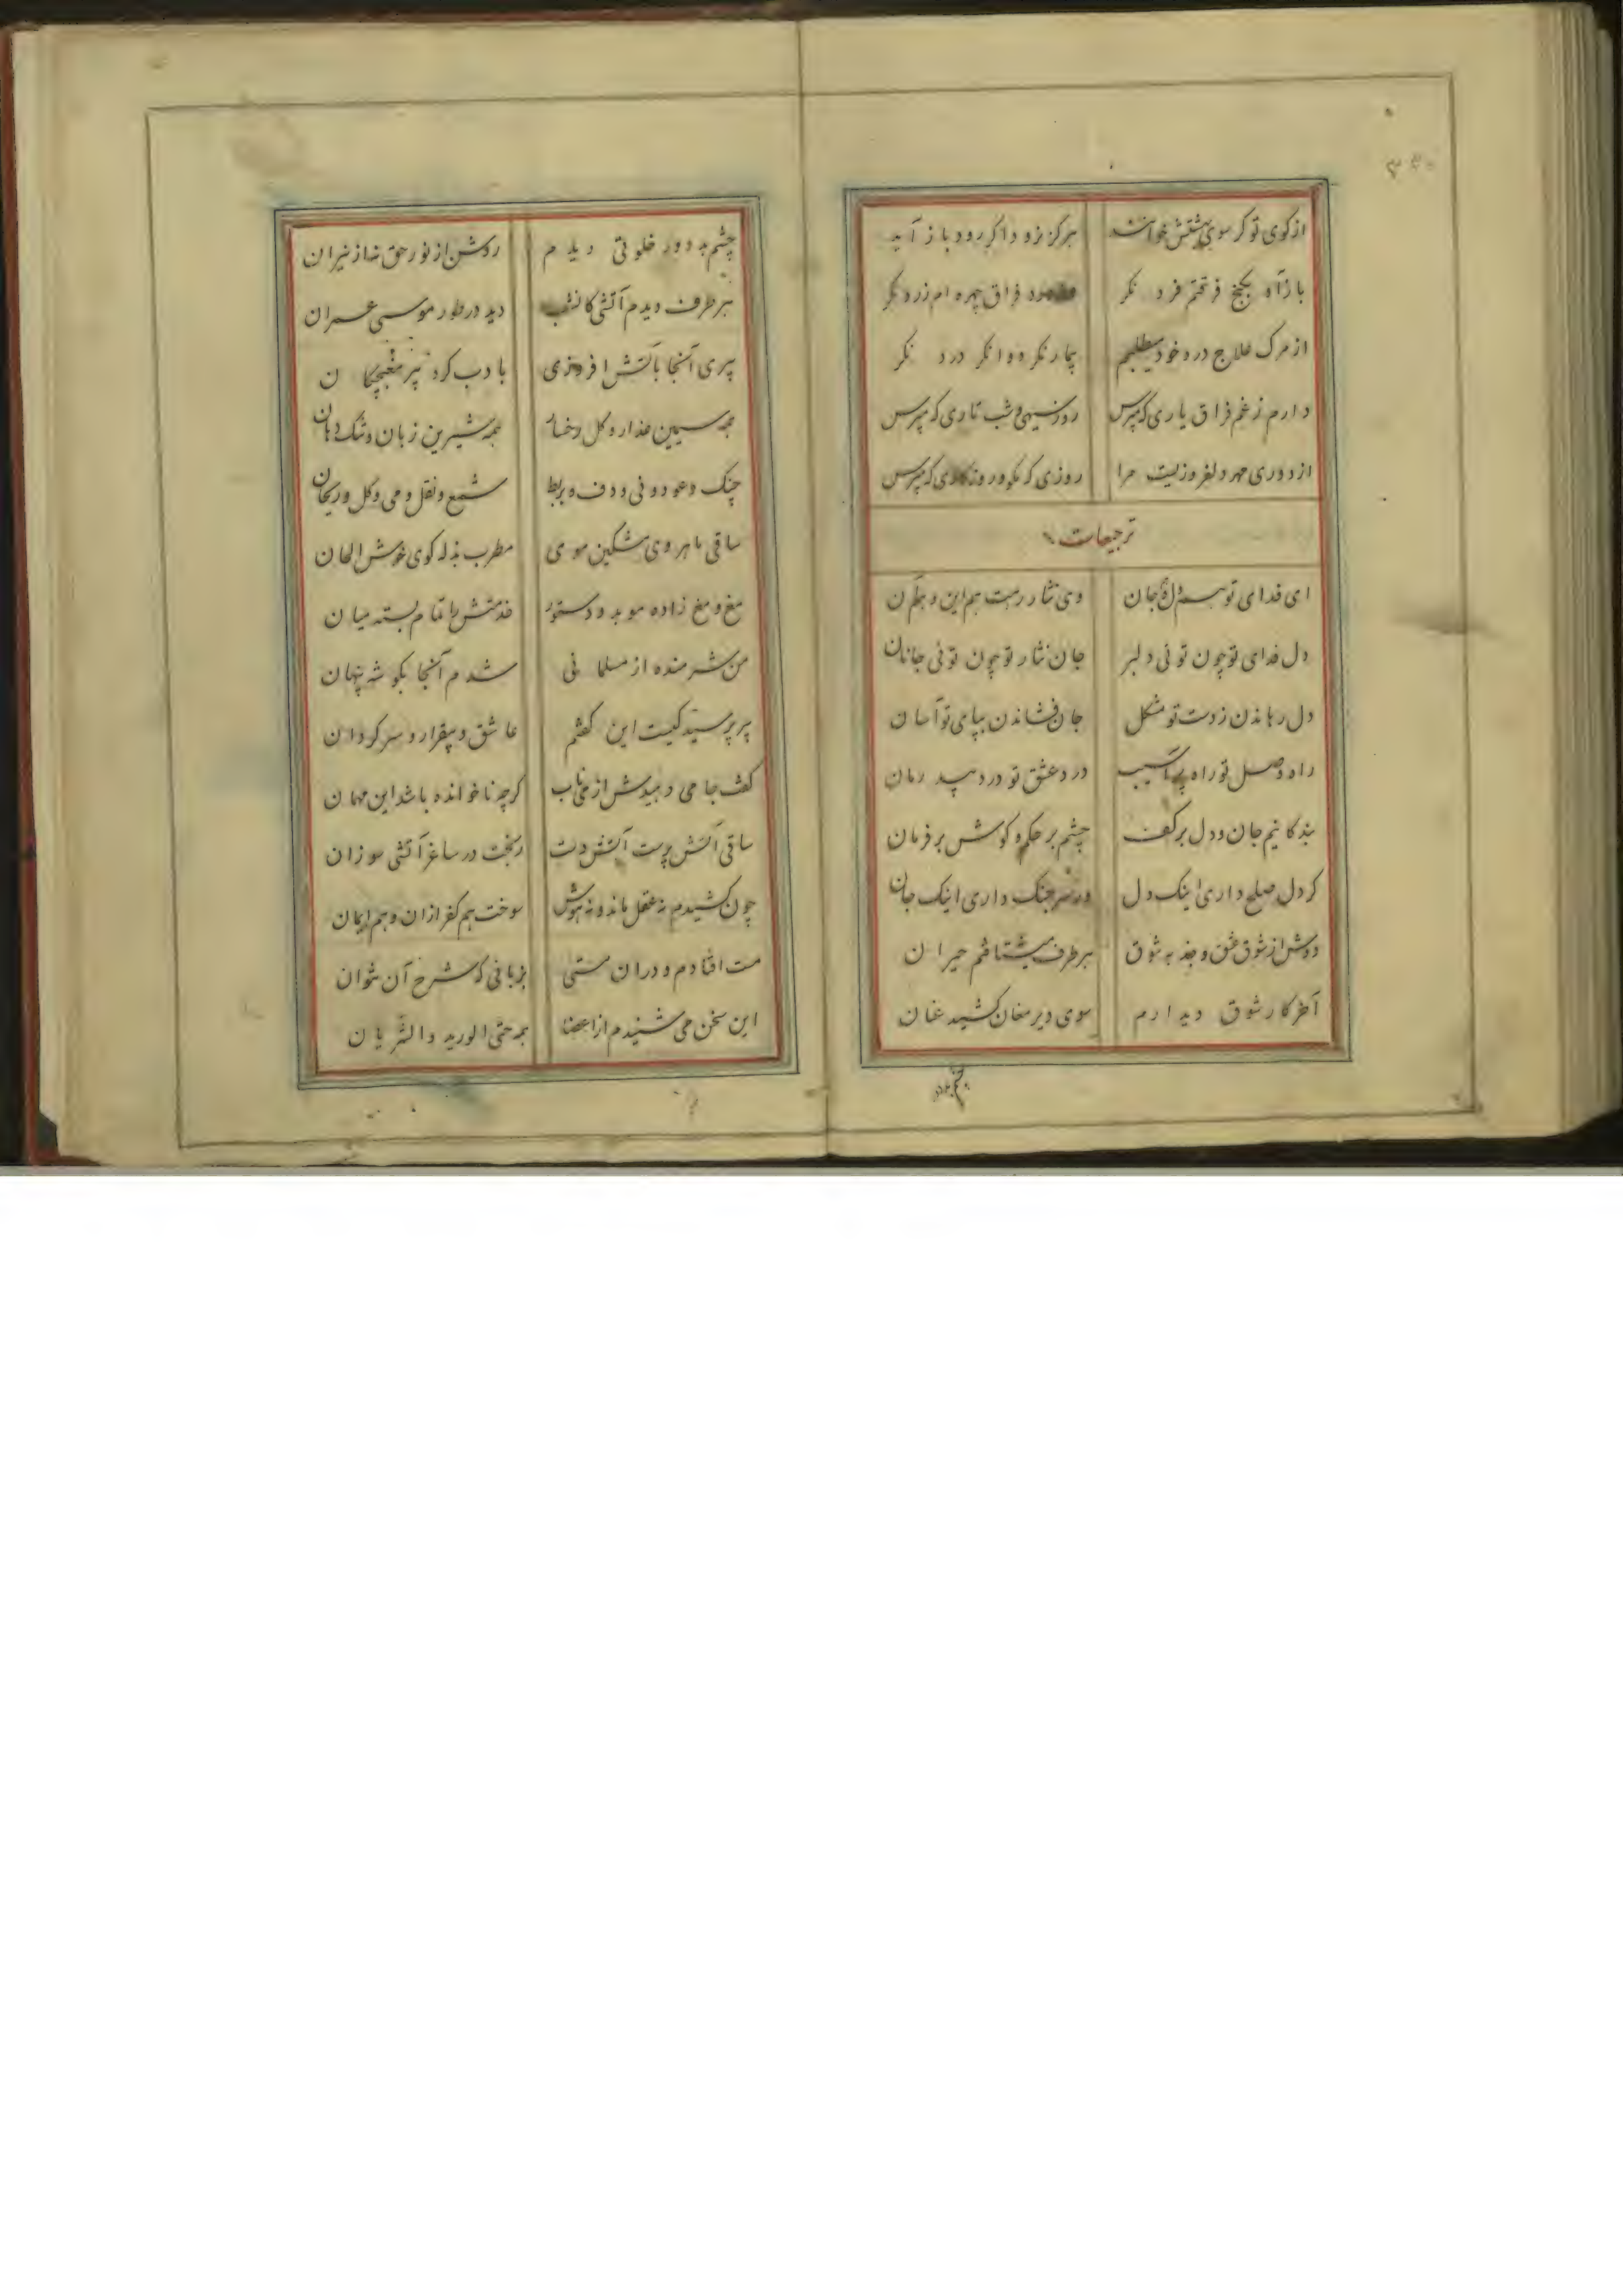 از کوی تو گر سوی بهشتش خوانند هرگز نرود واگر رود باز آید
بازآ و بکنج فرقتم فرد نگر فراق چهره ام زرد نگر
از مرگ علاج درد خود میطلبم بیمار نگر دوا نگر درد نگر
دارم ز غم فراق یاری که مپرس روز سیهی و شب تاری که مپرس
از دوری مهر دلفروزیست مرا روزی که مگو و روزگاری که مپرس
ترجیعات
ای فدای تو هم دل و هم جان وی نثار رهت هم این و هم آن
دل فدای تو چون توئی دلبر جان نثار تو چون توئی جانان
دل رهاندن ز دست تو مشکل جان فشاندن بپای تو آسان
راه وصل تو راه پر آسیب درد عشق تو درد بیدرمان
بندگانیم جان و دل بر کف چشم بر حکم و گوش بر فرمان
گر دل صلح داری اینک دل ور سر جنگ داری اینک جان
دوش از شوق عشق و جذبه شوق هر طرف میشتافتم حیران
آخر کار شوق دیدارم سوی دیر مغان کشید عنان
چشم بد دور
چشم بد دور خلوتی دیدم روشن از نور حق نه از نیران
هر طرف دیدم آتشی کانشب دید در طور موسی عمران
پیری آنجا بآتش افروزی بادب گرد پیر مغبچکان
همه سیمین عذار و گل رخسار همه شیرین زبان و تنگ دهان
چنگ و عود و نی و دف و بربط شمع و نقل و می و گل و ریحان
ساقی ماهروی مشکین موی مطرب بذله گوی خوش الحان
مغ و مغ زاده موبد و دستور خدمتش را تمام بسته میان
من شرمنده از مسلمانی شدم آنجا بگوشه پنهان
پیر پرسید کیست این گفتم عاشق و بیقرار و سرگردان
گفت جامی دهیدش از می ناب گرچه ناخوانده باشد این مهمان
ساقی آتش پرست آتش دست ریخت در ساغر آتشی سوزان
چون کشیدم نه عقل ماند و نه هوش سوخت هم کفر ازان و هم ایمان
مست افتادم و دران مستی بزبانی که شرح آن نتوان
این سخن می شنیدم از اعضا همه حتی الورید والشریان